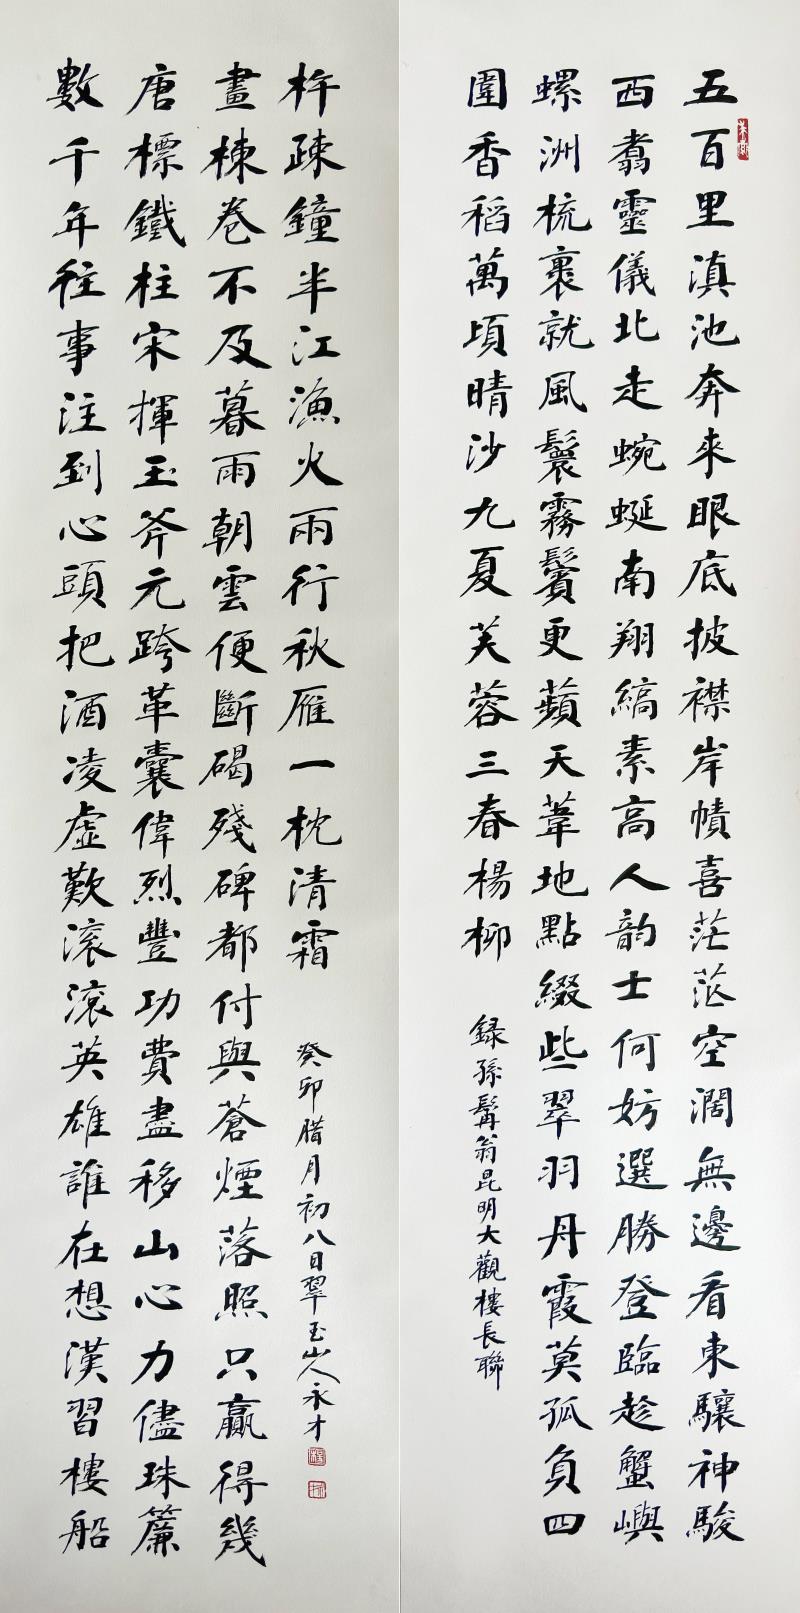 五百里滇池奔來眼底披襟岸幘喜茫茫空闊無邊看東驤神駿
西翥靈儀北走蜿蜒南翔縞素高人韵士何妨選勝登臨趁蟹嶼
螺洲梳裹就風鬟霧鬢更蘋天葦地點綴些翠羽丹霞莫孤負四
圍香稻萬頃晴沙九夏芙蓉三春楊柳
録孫髯翁昆明大觀樓長聯
數千年往事注到心頭把酒凌虛歎滾滾英雄誰在想漢習樓船
唐標鐵柱宋揮玉斧元跨革囊偉烈豐功費盡移山心力儘珠簾
畫棟卷不及暮雨朝雲便斷碣殘碑都付與蒼煙落照只贏得幾
杵疎鐘半江漁火兩行秋雁一枕清霜
癸卯腊月初八日翠玉山人永才